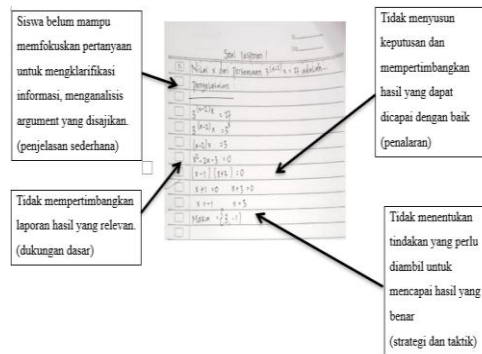 Siswa belum mampu
memfokuskan pertanyaan
untuk mengklarifikasi
informasi, menganalisis
argument yang disajikan.
(penjelasan sederhana)
Tidak mempertimbangkan
laporan hasil yang relevan.
(dukungan dasar)
Soal
Nilai x dari Persamaan 3^(x-2)x = 27 adalah...
Penyelesaian
3^(x-2)x = 27
3^(x-2)x = 3^3
(x-2)x = 3
x²-2x-3 = 0
x+1 = 0
x=-1 x=3
Maka
Tidak menyusun
keputusan dan
mempertimbangkan
hasil yang dapat
dicapai dengan baik
(penalaran)
Tidak menentukan
tindakan yang perlu
diambil untuk
mencapai hasil yang
benar
(strategi dan taktik)